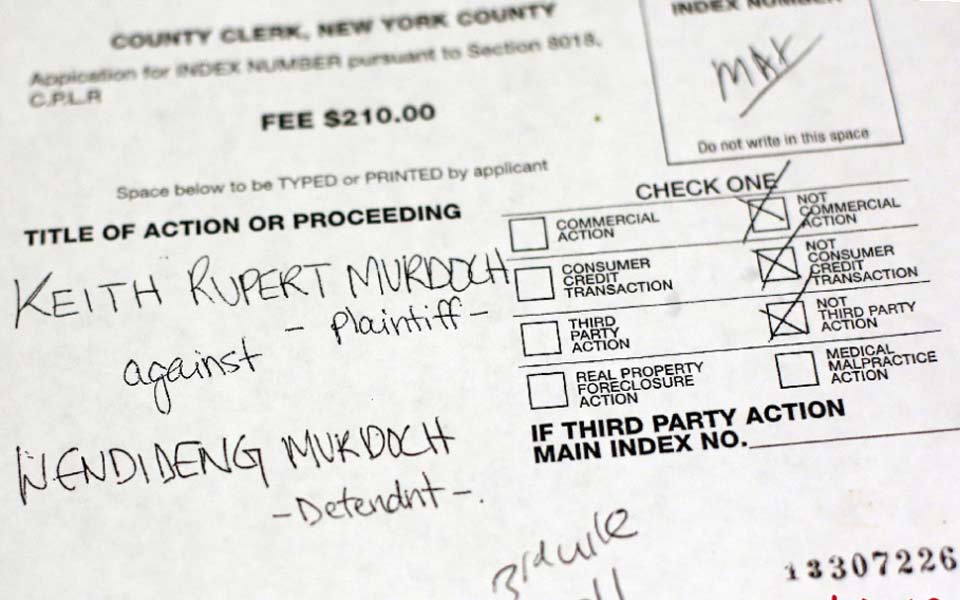 COUNTY CLERK, NEW YORK COUNTY
Application for INDEX NUMBER pursuant to Section 8018,
C.P.L.R
FEE $210.00
INDEX NUMBER
MAX
Do not write in this space
Space below to be TYPED or PRINTED by applicant
TITLE OF ACTION OR PROCEEDING
CHECK ONE
COMMERCIAL
ACTION
NOT
COMMERCIAL
ACTION
CONSUMER
CREDIT
TRANSACTION
NOT
CONSUMER
CREDIT
TRANSACTION
THIRD
PARTY
ACTION
NOT
THIRD PARTY
ACTION
REAL PROPERTY
FORECLOSURE
ACTION
MEDICAL
MALPRACTICE
ACTION
IF THIRD PARTY ACTION
MAIN INDEX NO.
KEITH RUPERT MURDOCH
- Plaintiff -
against
WENDI DENG MURDOCH
- Defendnt -.
13307226